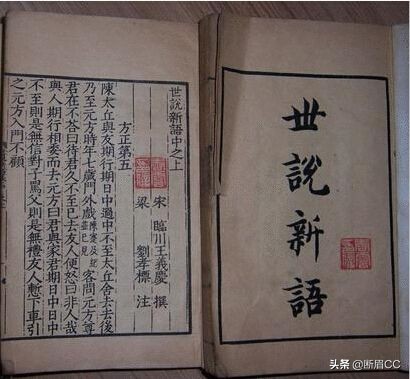 世說新語
世說新語中之上
宋 臨川王義慶 撰
梁 劉孝標 注
方正第五
陳太丘與友期行期日中過中不至太丘舍去去後
乃至元方時年七歲門外戲陳寔及紀並已見客問元方尊
君在不荅曰待君久不至已去友人便怒曰非人哉
與人期行相委而去元方曰君與家君期日中日中
不至則是無信對子罵父則是無禮友人慙下車引
之元方入門不顧
头条 @断眉CC